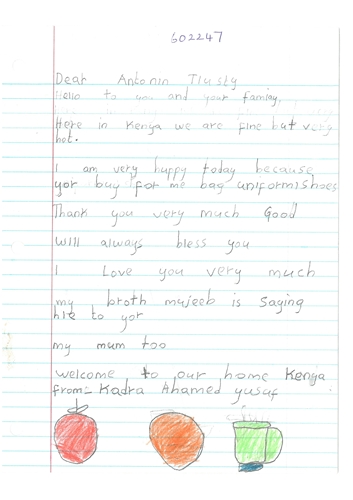 602247
Dear Antonin Tlusty
Hello to you and your famiay,
Here in Kenya we are fine but very
hot.
I am very happy today because
yor buy for me bag uniform shoes
Thank you very much Good
will always bless you
I Love you very much
my broth mujeeb is saying
hie to yor
my mum too
welcome to our home Kenya
from:- Kadra Ahamed yusuf